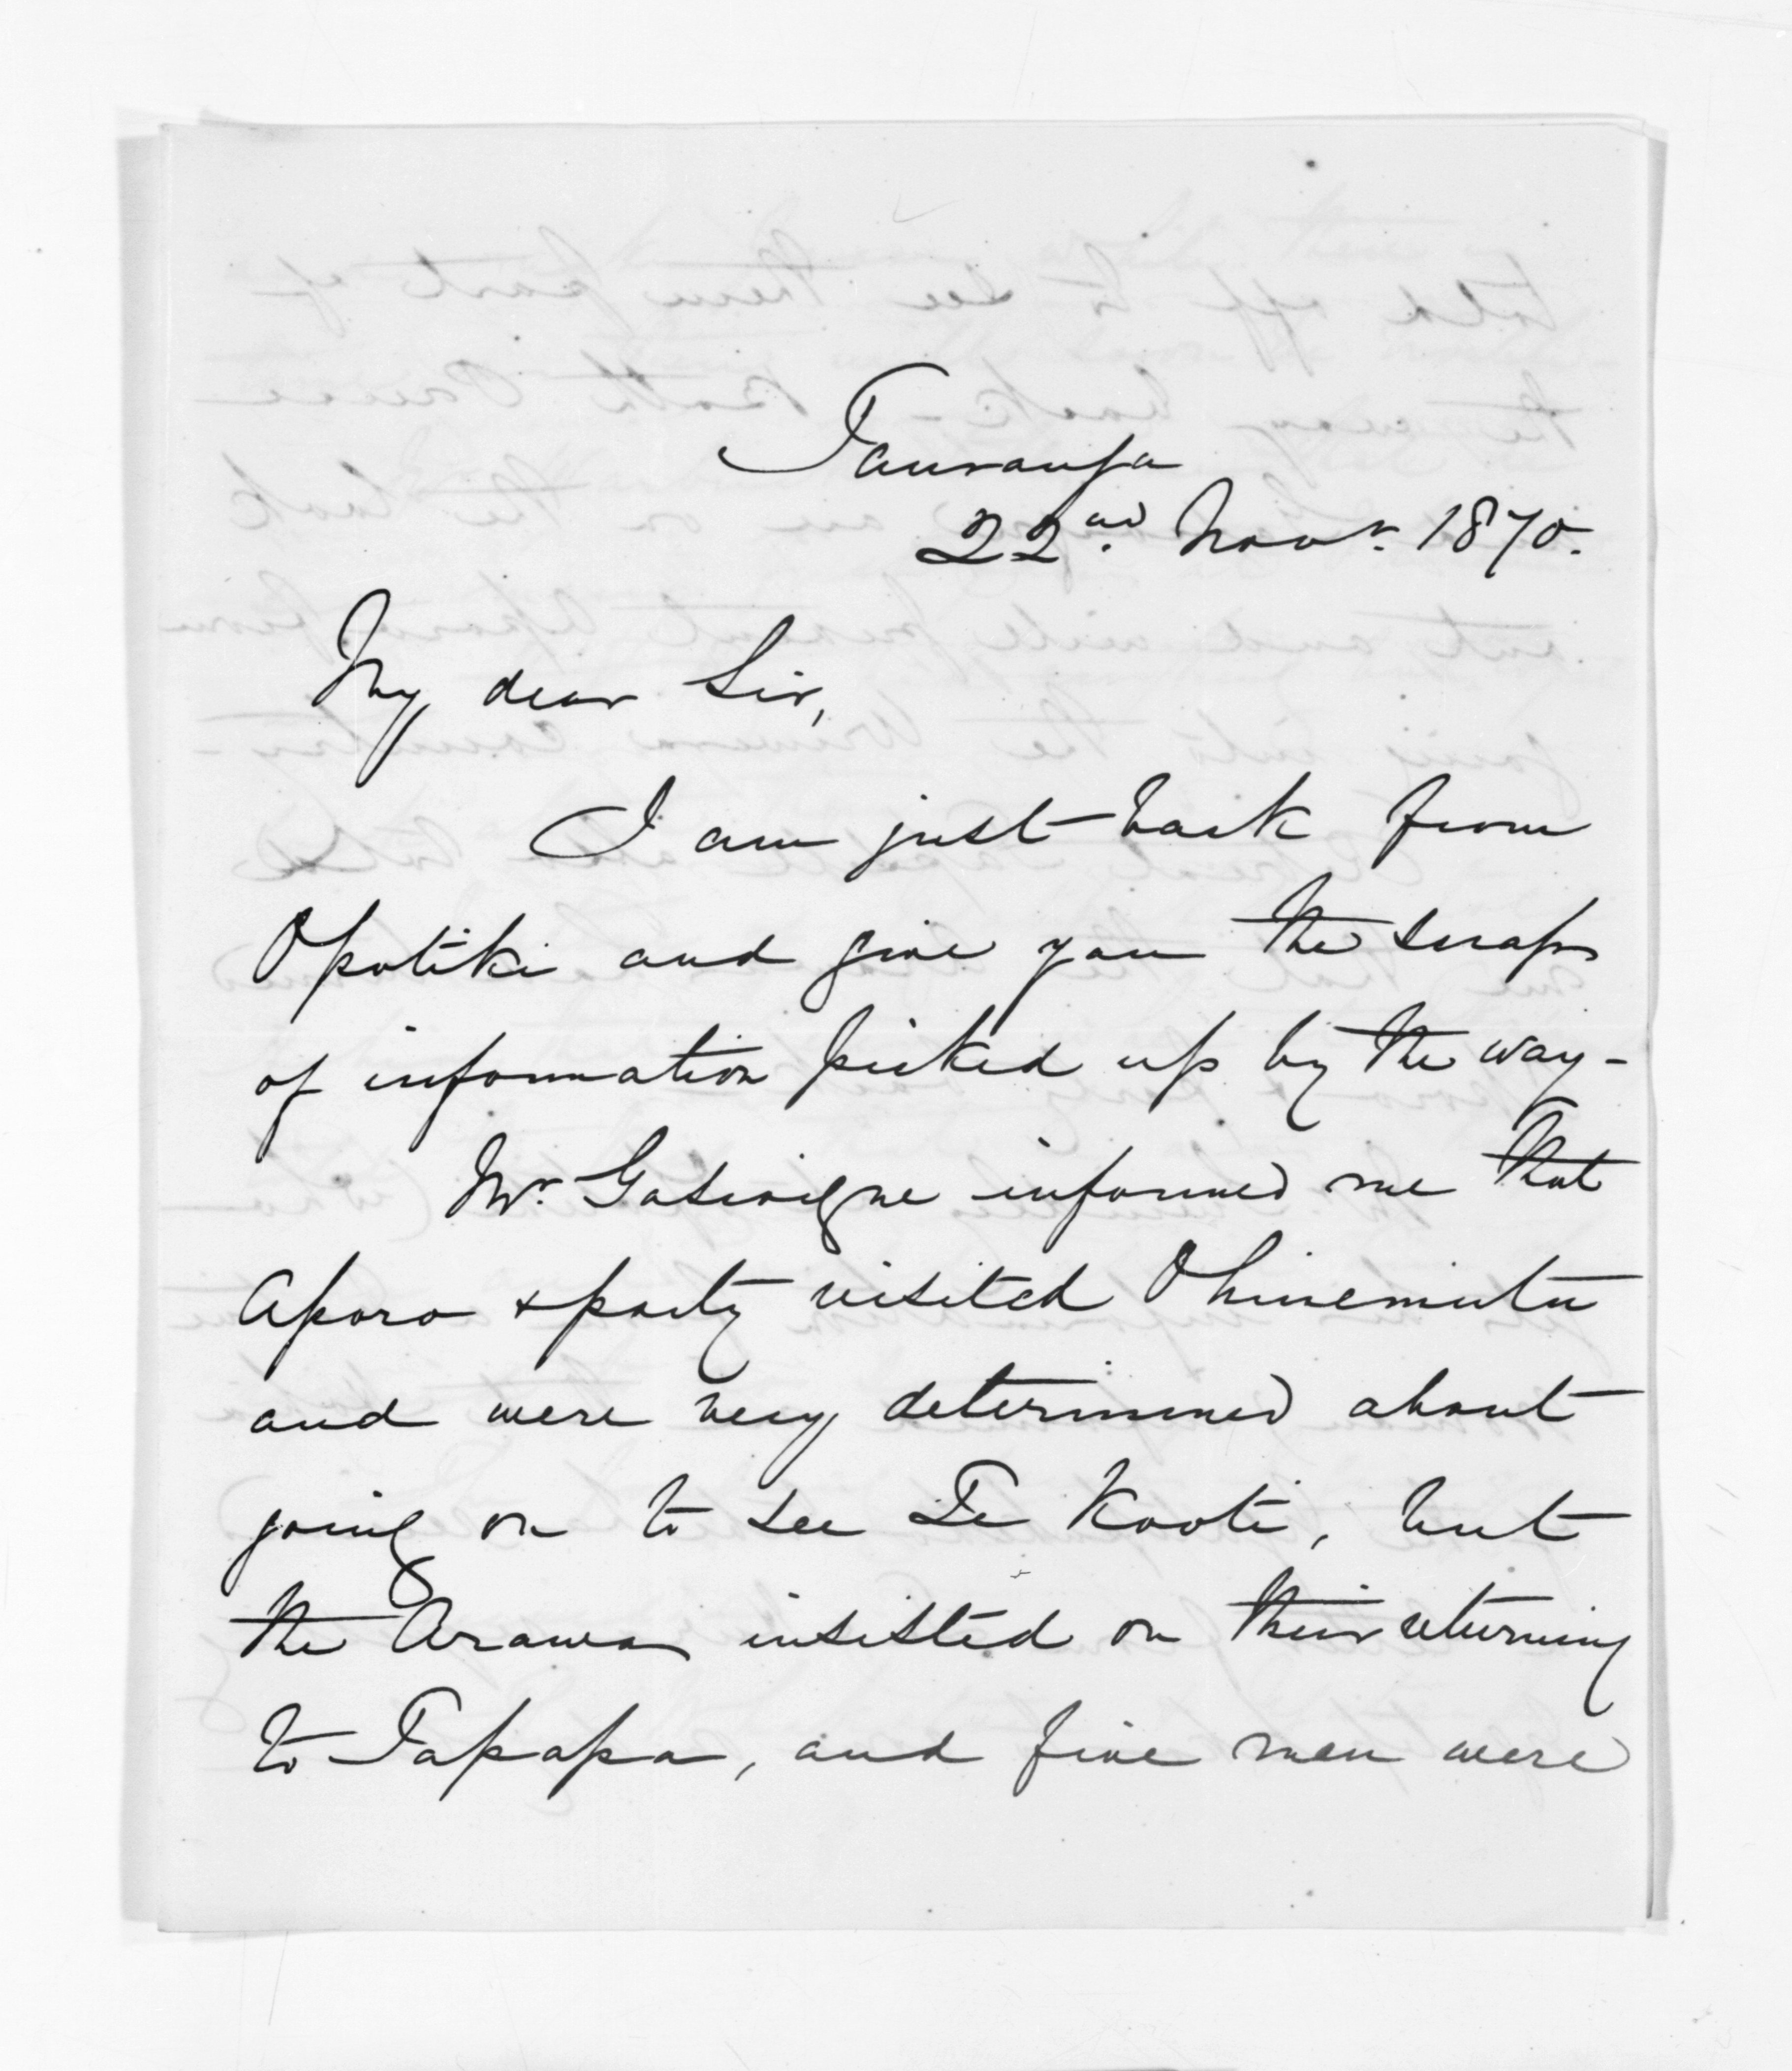 Tauranga
22nd Novr. 1870.
My dear Sir,
I am just back from
Opotiki and give you the scraps
of information picked up by the way -
Mr Gascoigne informed me that
Aporo & party visited Ohinemutu
and were very determined about
going on to see Te Kooti, but
the Arawas insisted on their returning
to Tapapa, and five men were